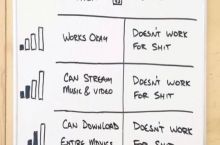 WORKS OKAY
DOESN'T WORK
FOR SHIT
CAN STREAM
MUSIC & VIDEO
DOESN'T WORK
FOR SHIT
CAN DOWNLOAD
ENTIRE MOVIES
DOESN'T WORK
FOR SHIT